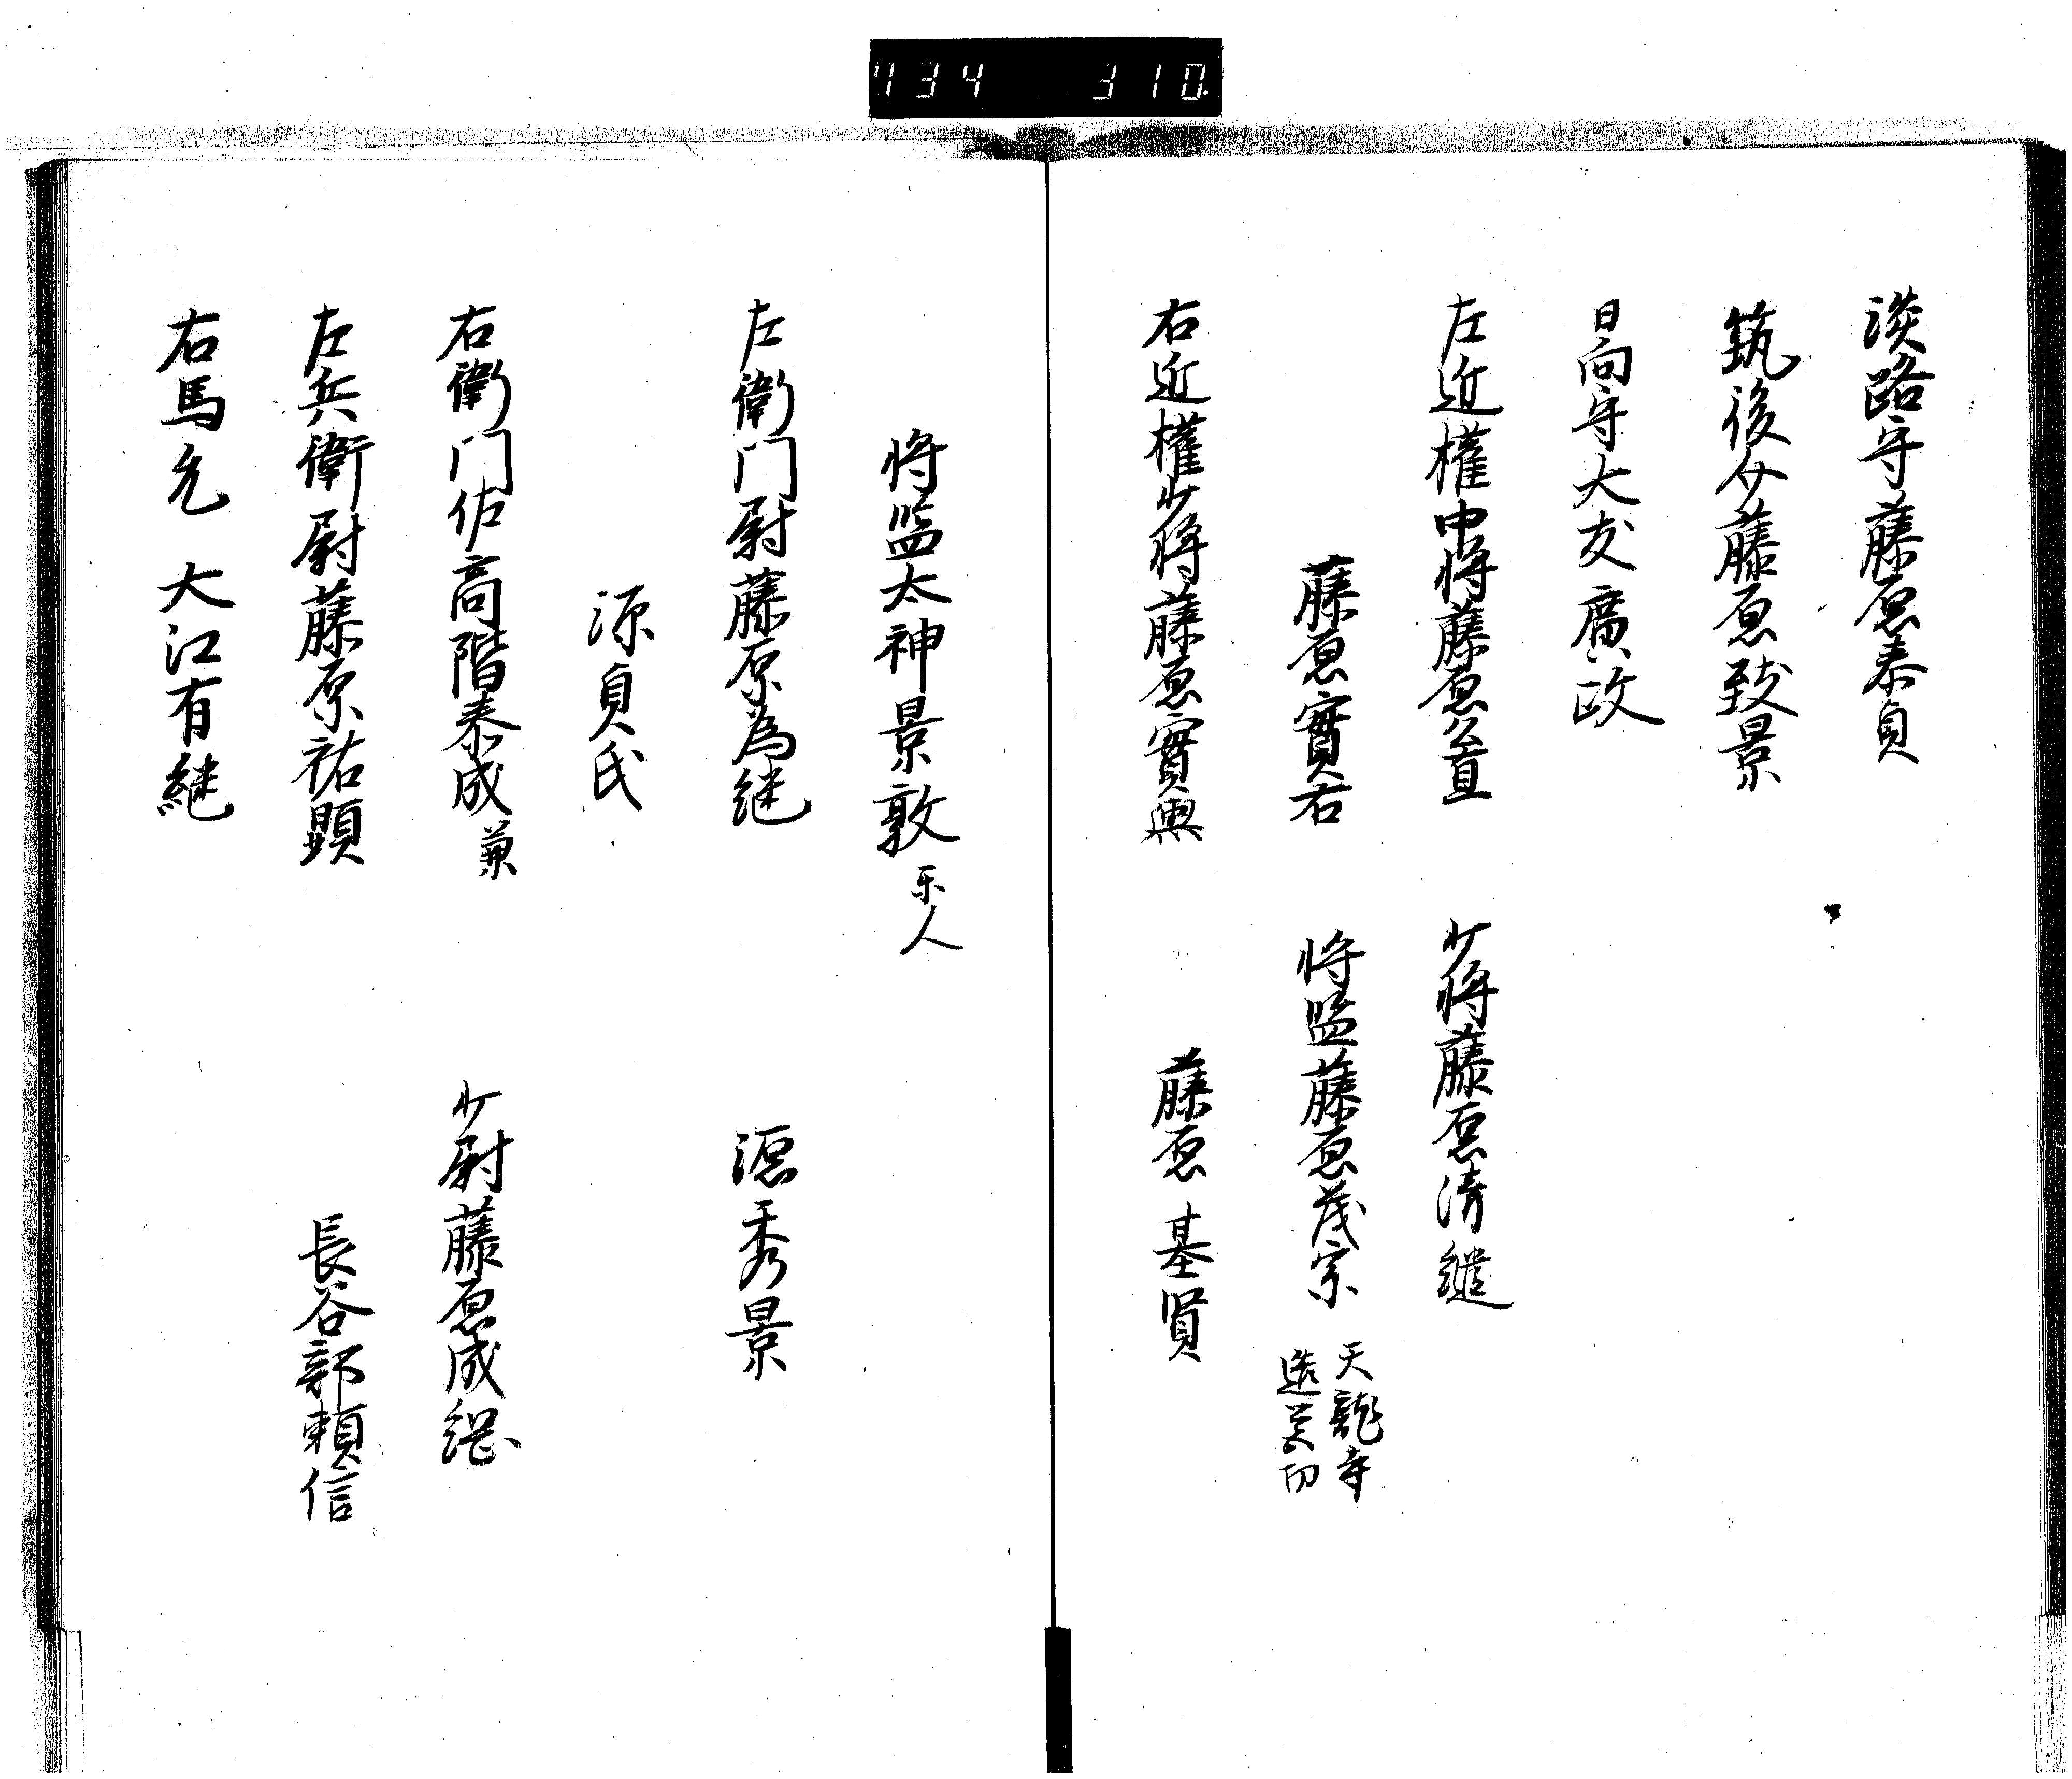 734 310
淡路守藤原泰貞
筑後介藤原致景
日向守大友廣政
左近權中将藤原公直
少将藤原清継
藤原實右
将監藤原茂宗
天龍寺
造営功
右近權少将藤原實興
藤原基賢
将監太神景敦
楽人
左衛门尉藤原為継
源秀景
源貞氏
右衛门佐高階泰成
兼
少尉藤原成綱
左兵衛尉藤原祐顕
長谷部頼信
右馬允 大江有継